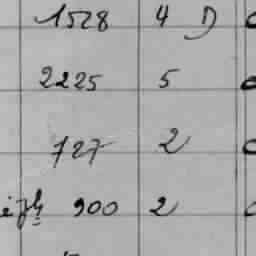 1528 4 D
2225 5
727 2
900 2